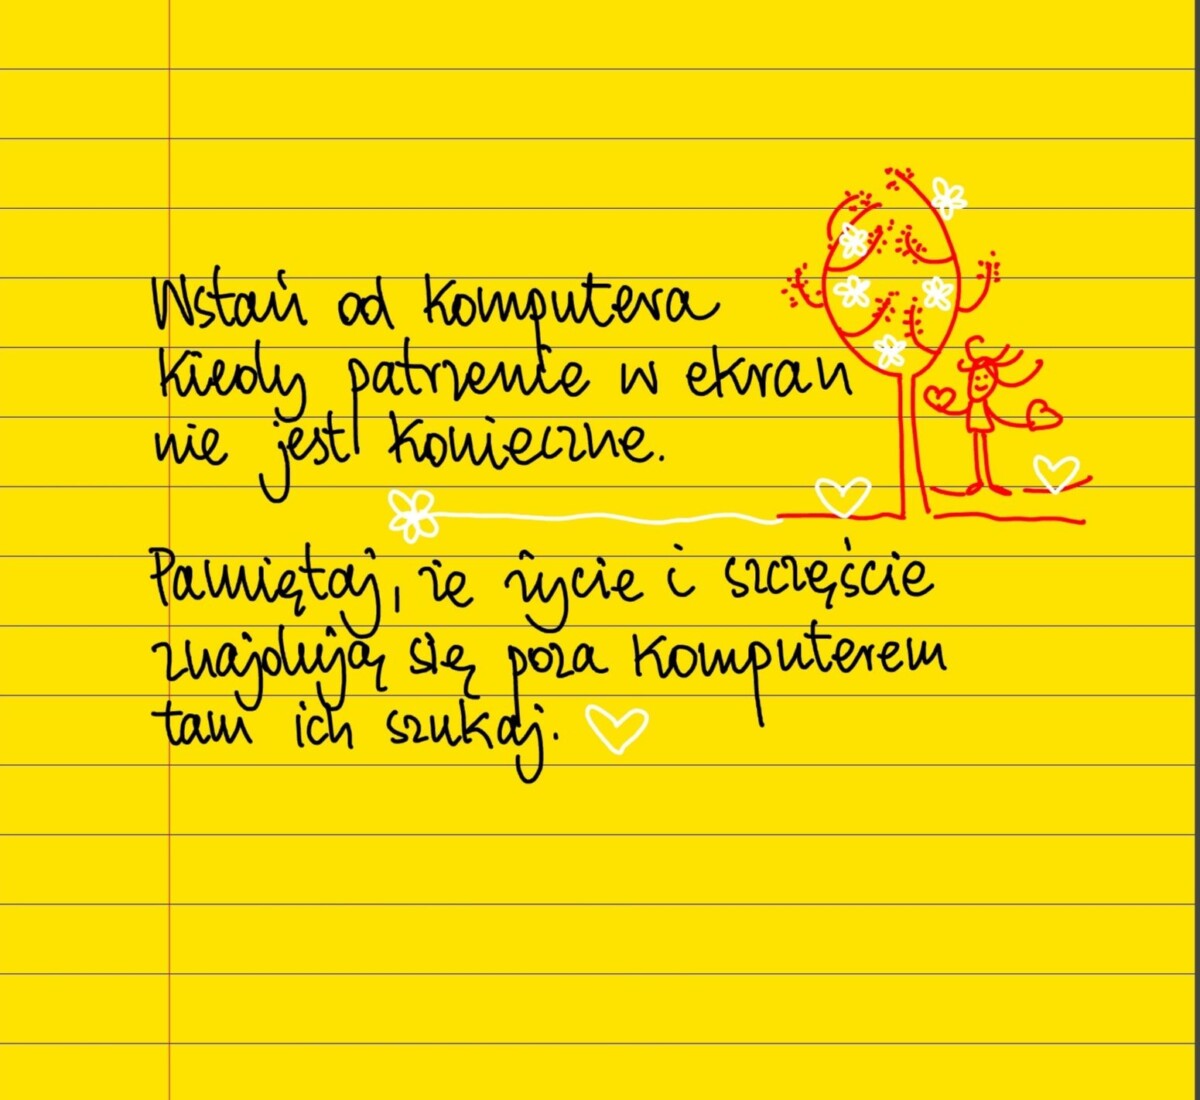 Wstań od komputera
kiedy patrzenie w ekran
nie jest konieczne.
Pamiętaj, że życie i szczęście
znajdują się poza komputerem
tam ich szukaj.